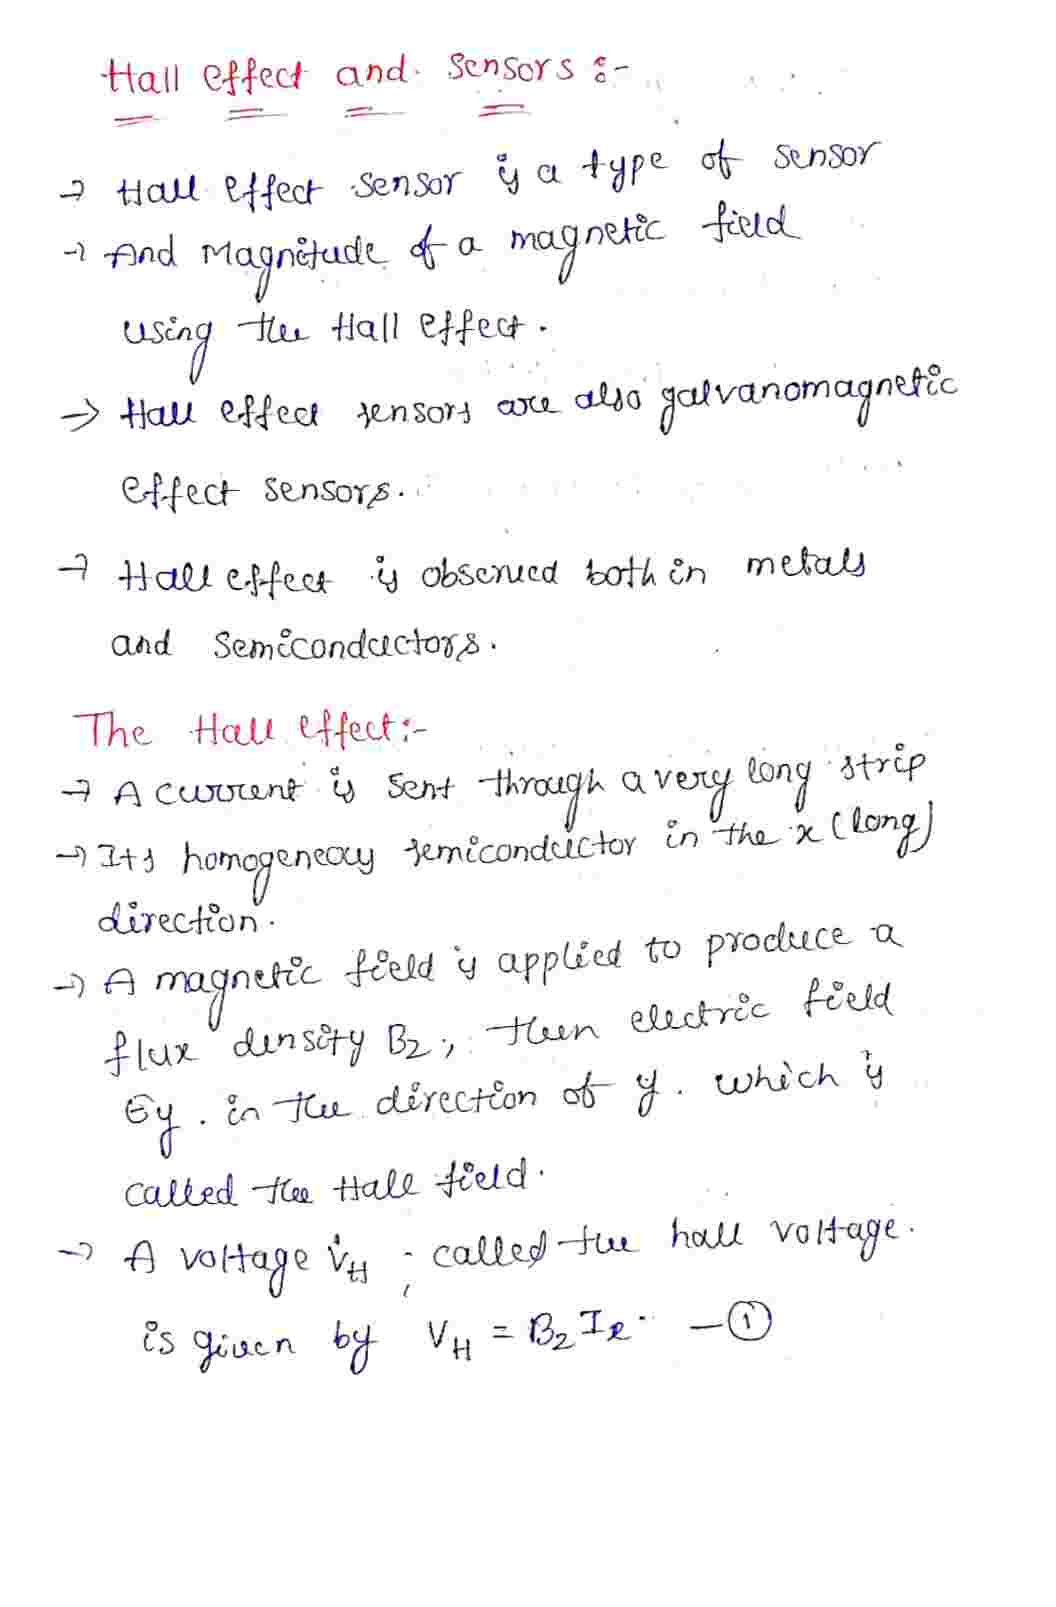 Hall effect and sensors :-
→ Hall effect sensor is a type of sensor
→ And Magnitude of a magnetic field
using the Hall effect.
→ Hall effect sensors are also galvanomagnetic
effect sensors.
→ Hall effect is observed both in metals
and Semiconductors.
The Hall effect :-
→ A current is sent through a very long strip
→ Its homogeneous semiconductor in the x (long)
direction.
→ A magnetic field is applied to produce a
flux density B2, then electric field
Ey. in the direction of y. which is
called the Hall field.
→ A voltage VH, called the hall voltage.
is given by VH = B2 IR. — ①